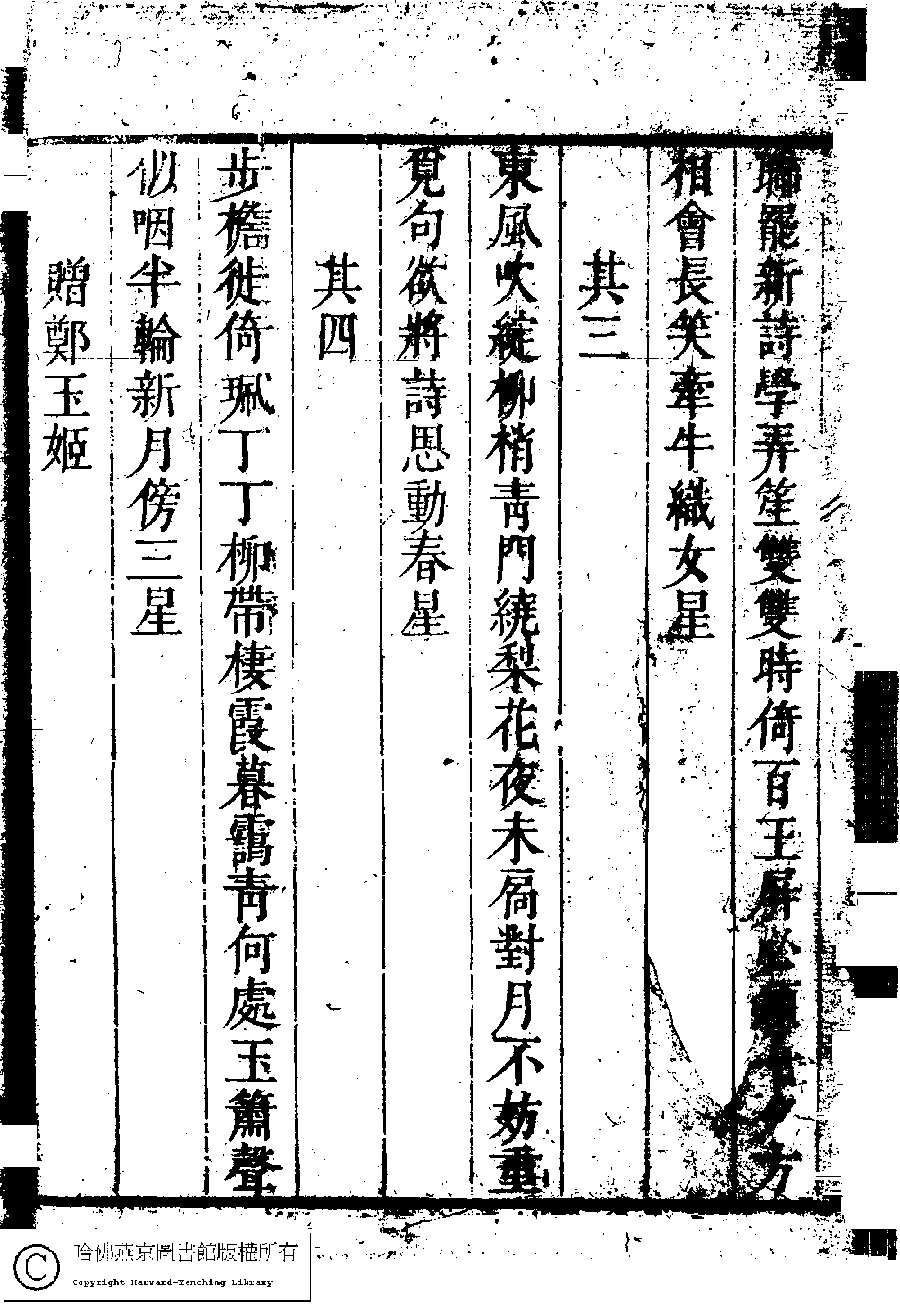 聯罷新詩學弄笙雙雙時倚百玉屏必七夕方
相會長笑牽牛織女星
其三
東風吹綻柳梢青門繞梨花夜未扃對月不妨重
覓句欲將詩思動春星
其四
步檐徙倚珮丁丁柳帶棲霞暮靄青何處玉簫聲
似咽半輪新月傍三星
贈鄭玉姬
哈佛燕京圖書館版權所有
Copyright Harvard-Yenching Library